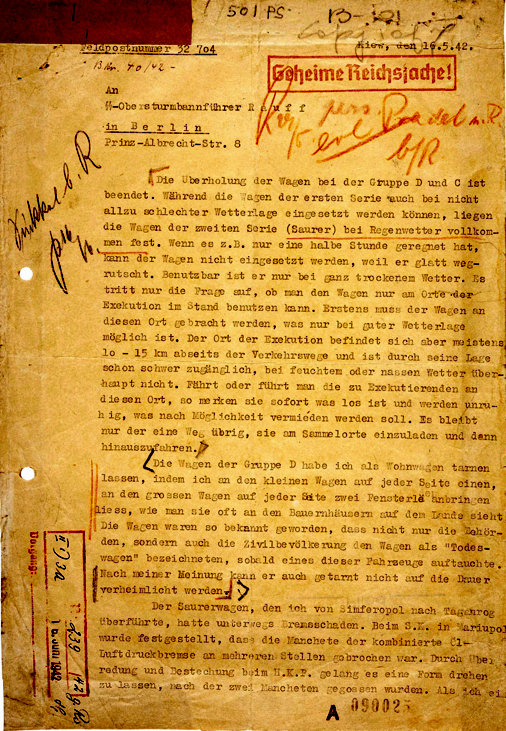 501 PS
Feldpostnummer 32 704
Kiew, den 16.5.42.
B.Nr. 40/42 -
Geheime Reichssache!
An
SS-Obersturmbannführer R a u f f
in B e r l i n
Prinz-Albrecht-Str. 8
pers.
b/R
Die Überholung der Wagen bei der Gruppe D und C ist
beendet. Während die Wagen der ersten Serie auch bei nicht
allzu schlechter Wetterlage eingesetzt werden können, liegen
die Wagen der zweiten Serie (Saurer) bei Regenwetter vollkom-
men fest. Wenn es z.B. nur eine halbe Stunde geregnet hat,
kann der Wagen nicht eingesetzt werden, weil er glatt weg-
rutscht. Benutzbar ist er nur bei ganz trockenem Wetter. Es
tritt nur die Frage auf, ob man den Wagen nur am Orte der
Exekution im Stand benutzen kann. Erstens muss der Wagen an
diesen Ort gebracht werden, was nur bei guter Wetterlage
möglich ist. Der Ort der Exekution befindet sich aber meistens
1o - 15 km abseits der Verkehrswege und ist durch seine Lage
schon schwer zugänglich, bei feuchtem oder nassen Wetter über-
haupt nicht. Fährt oder führt man die zu Exekutierenden an
diesen Ort, so merken sie sofort was los ist und werden unru-
hig, was nach Möglichkeit vermieden werden soll. Es bleibt
nur der eine Weg übrig, sie am Sammelorte einzuladen und dann
hinauszufahren.
Die Wagen der Gruppe D habe ich als Wohnwagen tarnen
lassen, indem ich an den kleinen Wagen auf jeder Seite einen,
an den grossen Wagen auf jeder Seite zwei Fensterläden anbringen
liess, wie man sie oft an den Bauernhäusern auf dem Lande sieht.
Die Wagen waren so bekannt geworden, dass nicht nur die Behör-
den, sondern auch die Zivilbevölkerung den Wagen als "Todes-
wagen" bezeichneten, sobald eines dieser Fahrzeuge auftauchte.
Nach meiner Meinung kann er auch getarnt nicht auf die Dauer
verheimlicht werden.
Der Saurerwagen, den ich von Simferopol nach Taganrog
überführte, hatte unterwegs Bremsschaden. Beim S.K. in Mariupol
wurde festgestellt, dass die Manchete der kombinierte Öl-
Luftdruckbremse an mehreren Stellen gebrochen war. Durch Über
redung und Bestechung beim H.K.P. gelang es eine Form drehen
zu lassen, nach der zwei Mancheten gegossen wurden. Als ich ei
Vorgang:
II D 3a
1942
A 090025